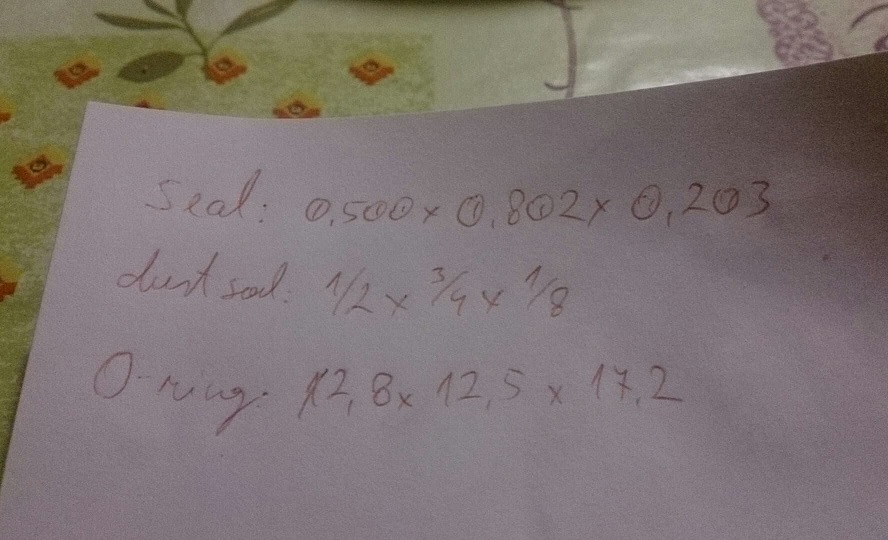 Seal: 0,500 x 0,802 x 0,203
dust seal: 1/2 x 3/4 x 1/8
O-ring: 12,8 x 12,5 x 17,2